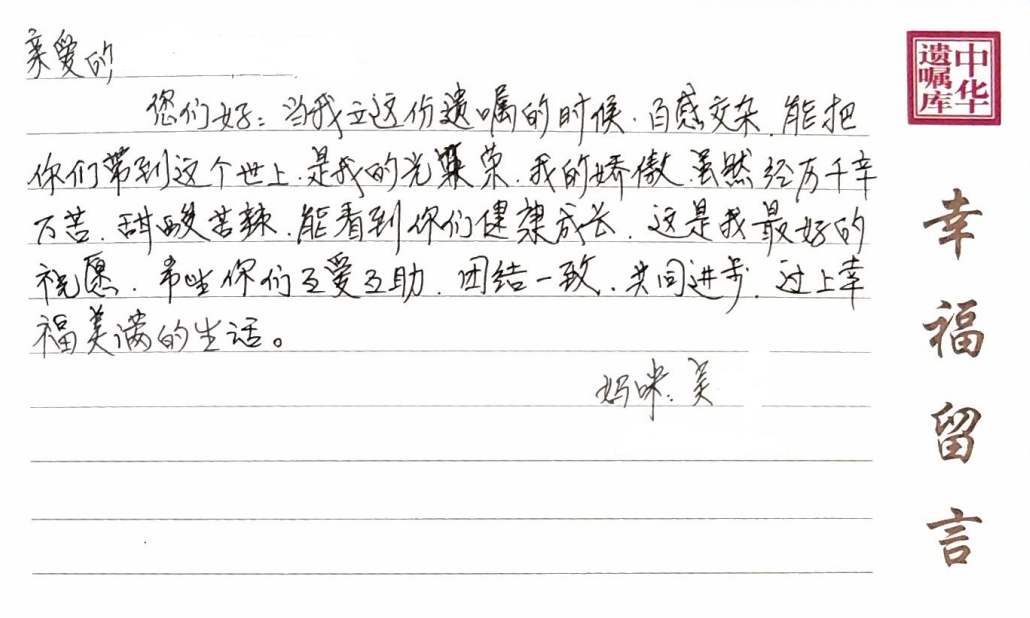 亲爱的
您们好：当我立这份遗嘱的时候．百感交杂．能把
你们带到这个世上．是我的光荣．我的娇傲．虽然经历千辛
万苦．甜酸苦辣．能看到你们健康成长．这是我最好的
祝愿．希望你们互爱互助．团结一致．共同进步．过上幸
福美满的生活。
妈咪：美
中华
遗嘱库
幸福留言